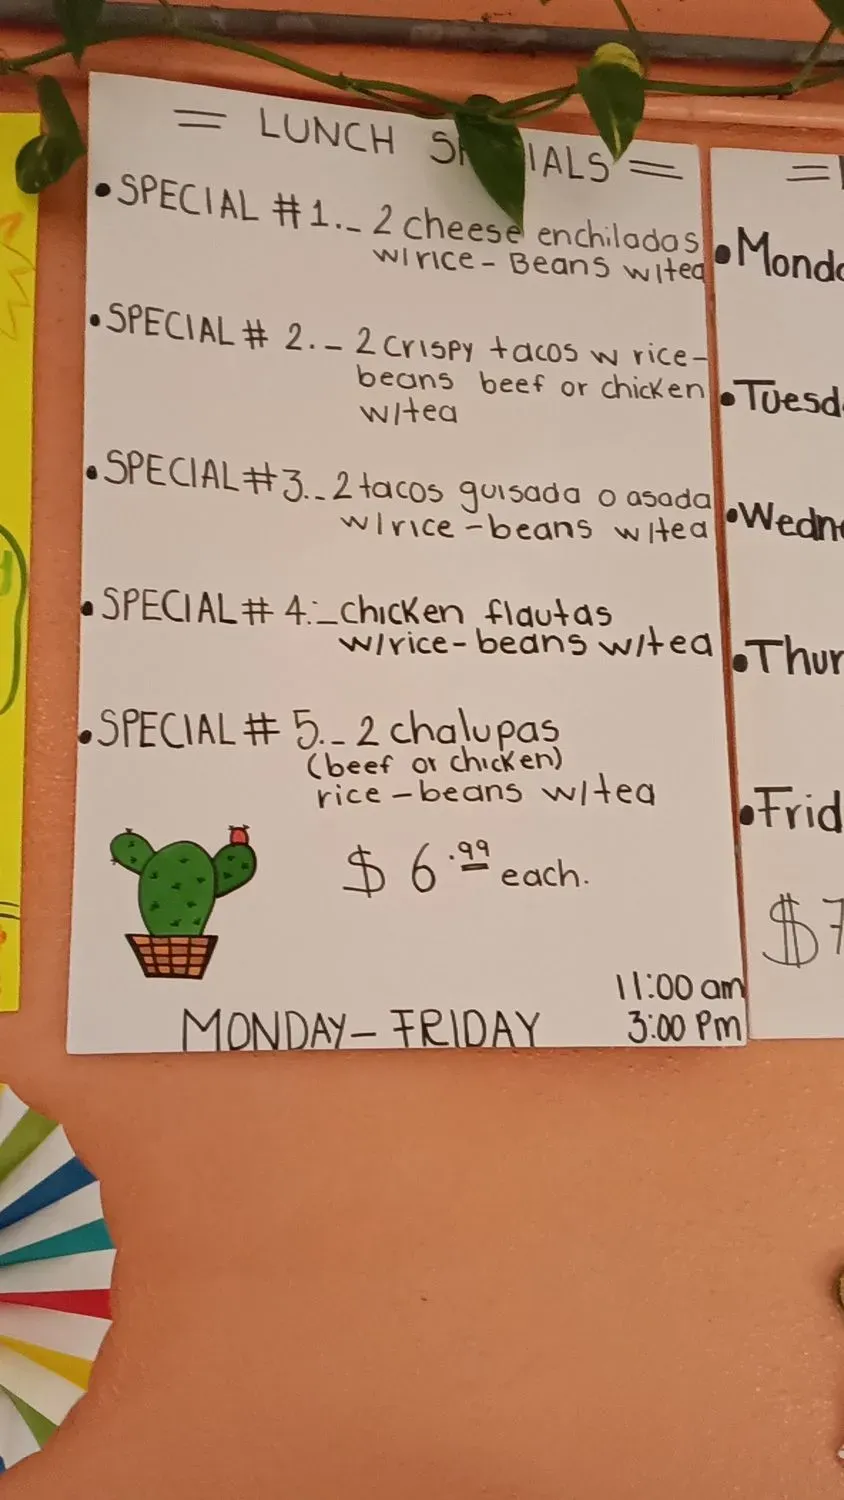 = LUNCH SPECIALS =
• SPECIAL #1._ 2 cheese enchiladas
w/rice - Beans w/tea
• SPECIAL # 2._ 2 crispy tacos w rice-
beans beef or chicken
w/tea
• SPECIAL #3._ 2 tacos guisada o asada
w/rice - beans w/tea
• SPECIAL # 4._ chicken flautas
w/rice - beans w/tea
• SPECIAL # 5._ 2 chalupas
(beef or chicken)
rice - beans w/tea
$ 6.99 each.
11:00 am
MONDAY - FRIDAY 3:00 Pm
• Monda
• Tuesd
• Wedn
• Thur
• Frid
$7